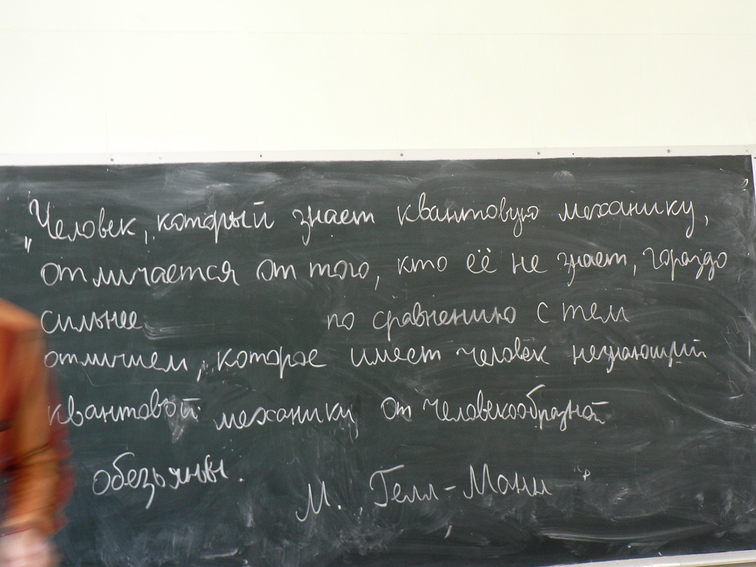 „Человек, который знает квантовую механику,
отличается от того, кто её не знает, гораздо
сильнее по сравнению с тем
отличием, которое имеет человек незнающий
квантовой механики от человекообразной
обезьяны.
М. Гелл-Манн "